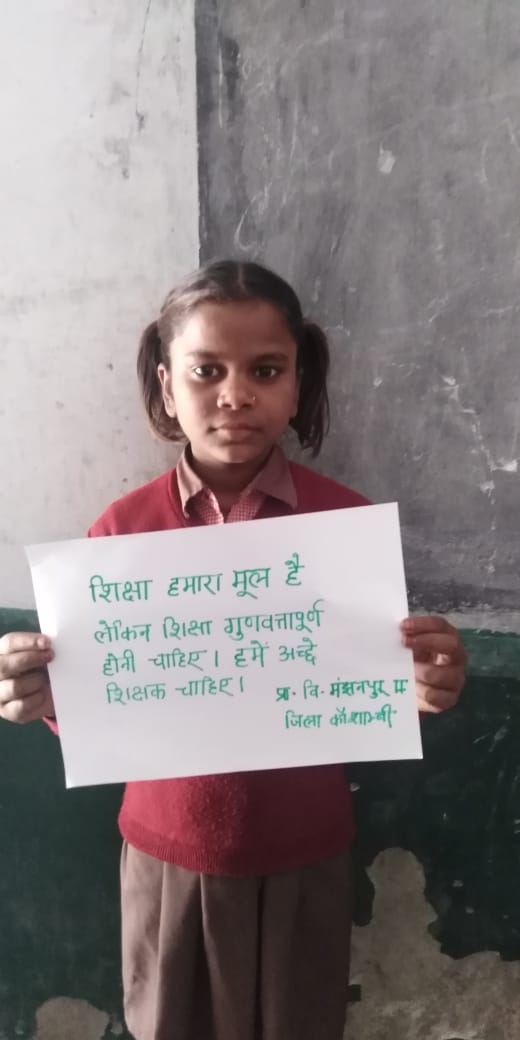 शिक्षा हमारा मूल है
लेकिन शिक्षा गुणवत्तापूर्ण
होनी चाहिए। हमें अच्छे
शिक्षक चाहिए।
प्रा. वि. मंझनपुर
जिला कौशाम्बी